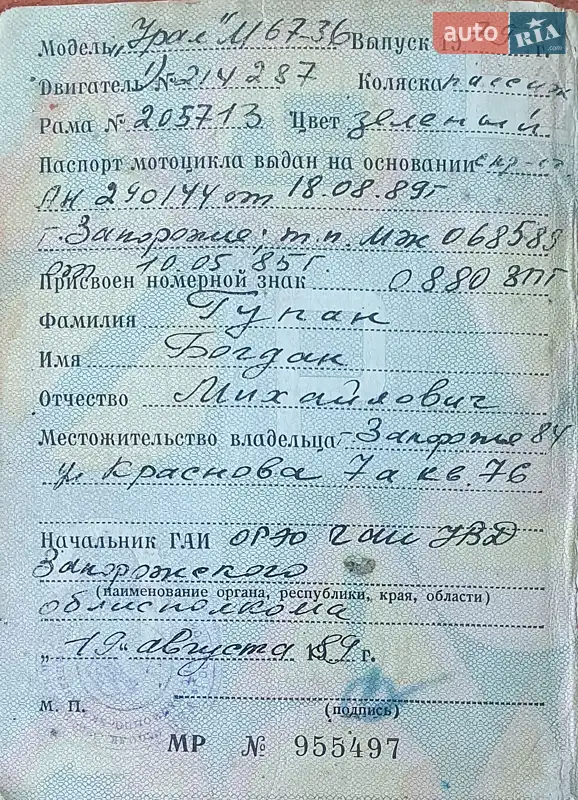 auto RIA.com
Модель „Урал" М67-36 Выпуск 19 г.
Двигатель № 214287 Коляска пассаж
Рама № 205713 Цвет зеленый
Паспорт мотоцикла выдан на основании спр-сч.
АН 240144 от 18.08.89г
г. Запорожье; т.п. МЖ 068589
от 10.05.85г.
Присвоен номерной знак 0880 ЗПГ
Фамилия Гупан
Имя Богдан
Отчество Михайлович
Местожительство владельца г. Запорожье 84
ул Краснова 7а кв. 76
Начальник ГАИ ОРЭО ГАИ УВД
Запорожского
(наименование органа, республики, края, области)
облисполкома
„19" августа 1989 г.
М. П.
(подпись)
МР № 955497